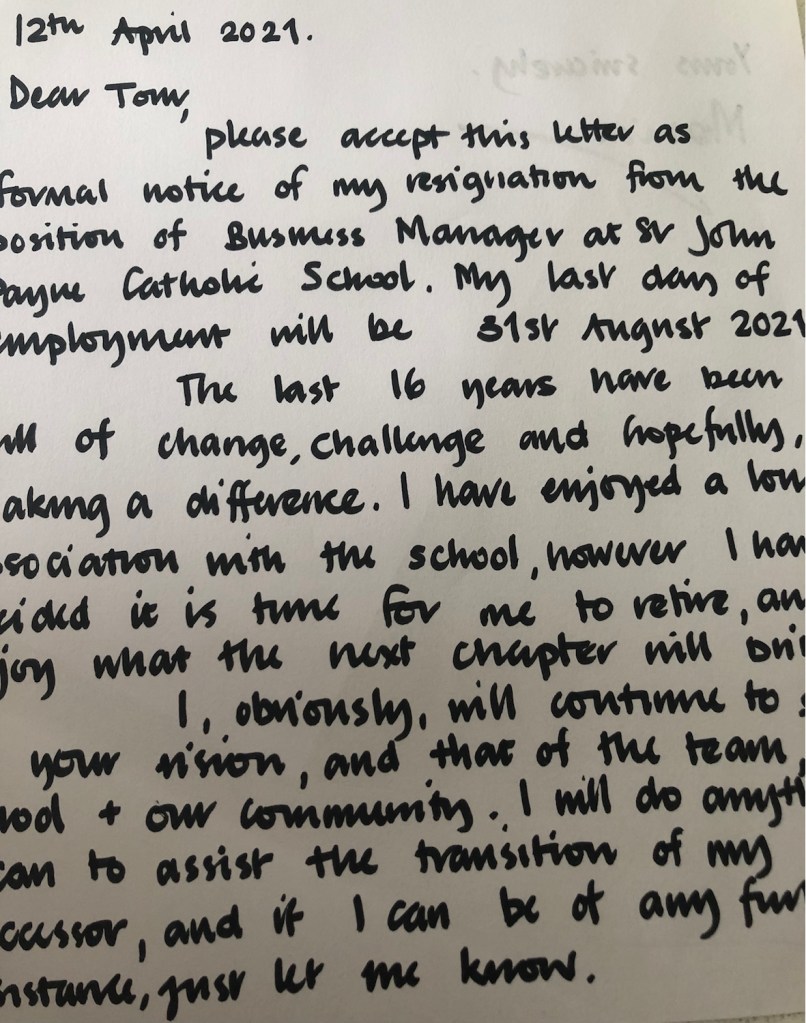 12th April 2021.
Dear Tom,
please accept this letter as
formal notice of my resignation from the
position of Business Manager at St John
Payne Catholic School. My last day of
employment will be 31st August 2021
The last 16 years have been
of change, challenge and hopefully,
aking a difference. I have enjoyed a lon
ssociation with the school, however I hav
cided it is time for me to retire, an
joy what the next chapter will bri
I, obviously, will continue to s
your vision, and that of the team,
hool + our community. I will do anyth
can to assist the transition of my
ccessor, and if I can be of any fur
sistance, just let me know.
Yours sincerely.